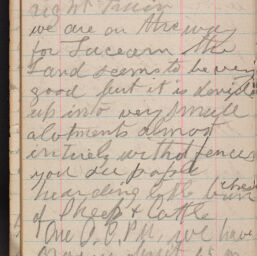 right train
we are on the way
for Lucearn the
Land seems to be very
good but it is devided
up into very small
alotments almost
intirely without fences
you see people
hearding little bunches
of Sheep & Cattle
One O.C. P.M. we have